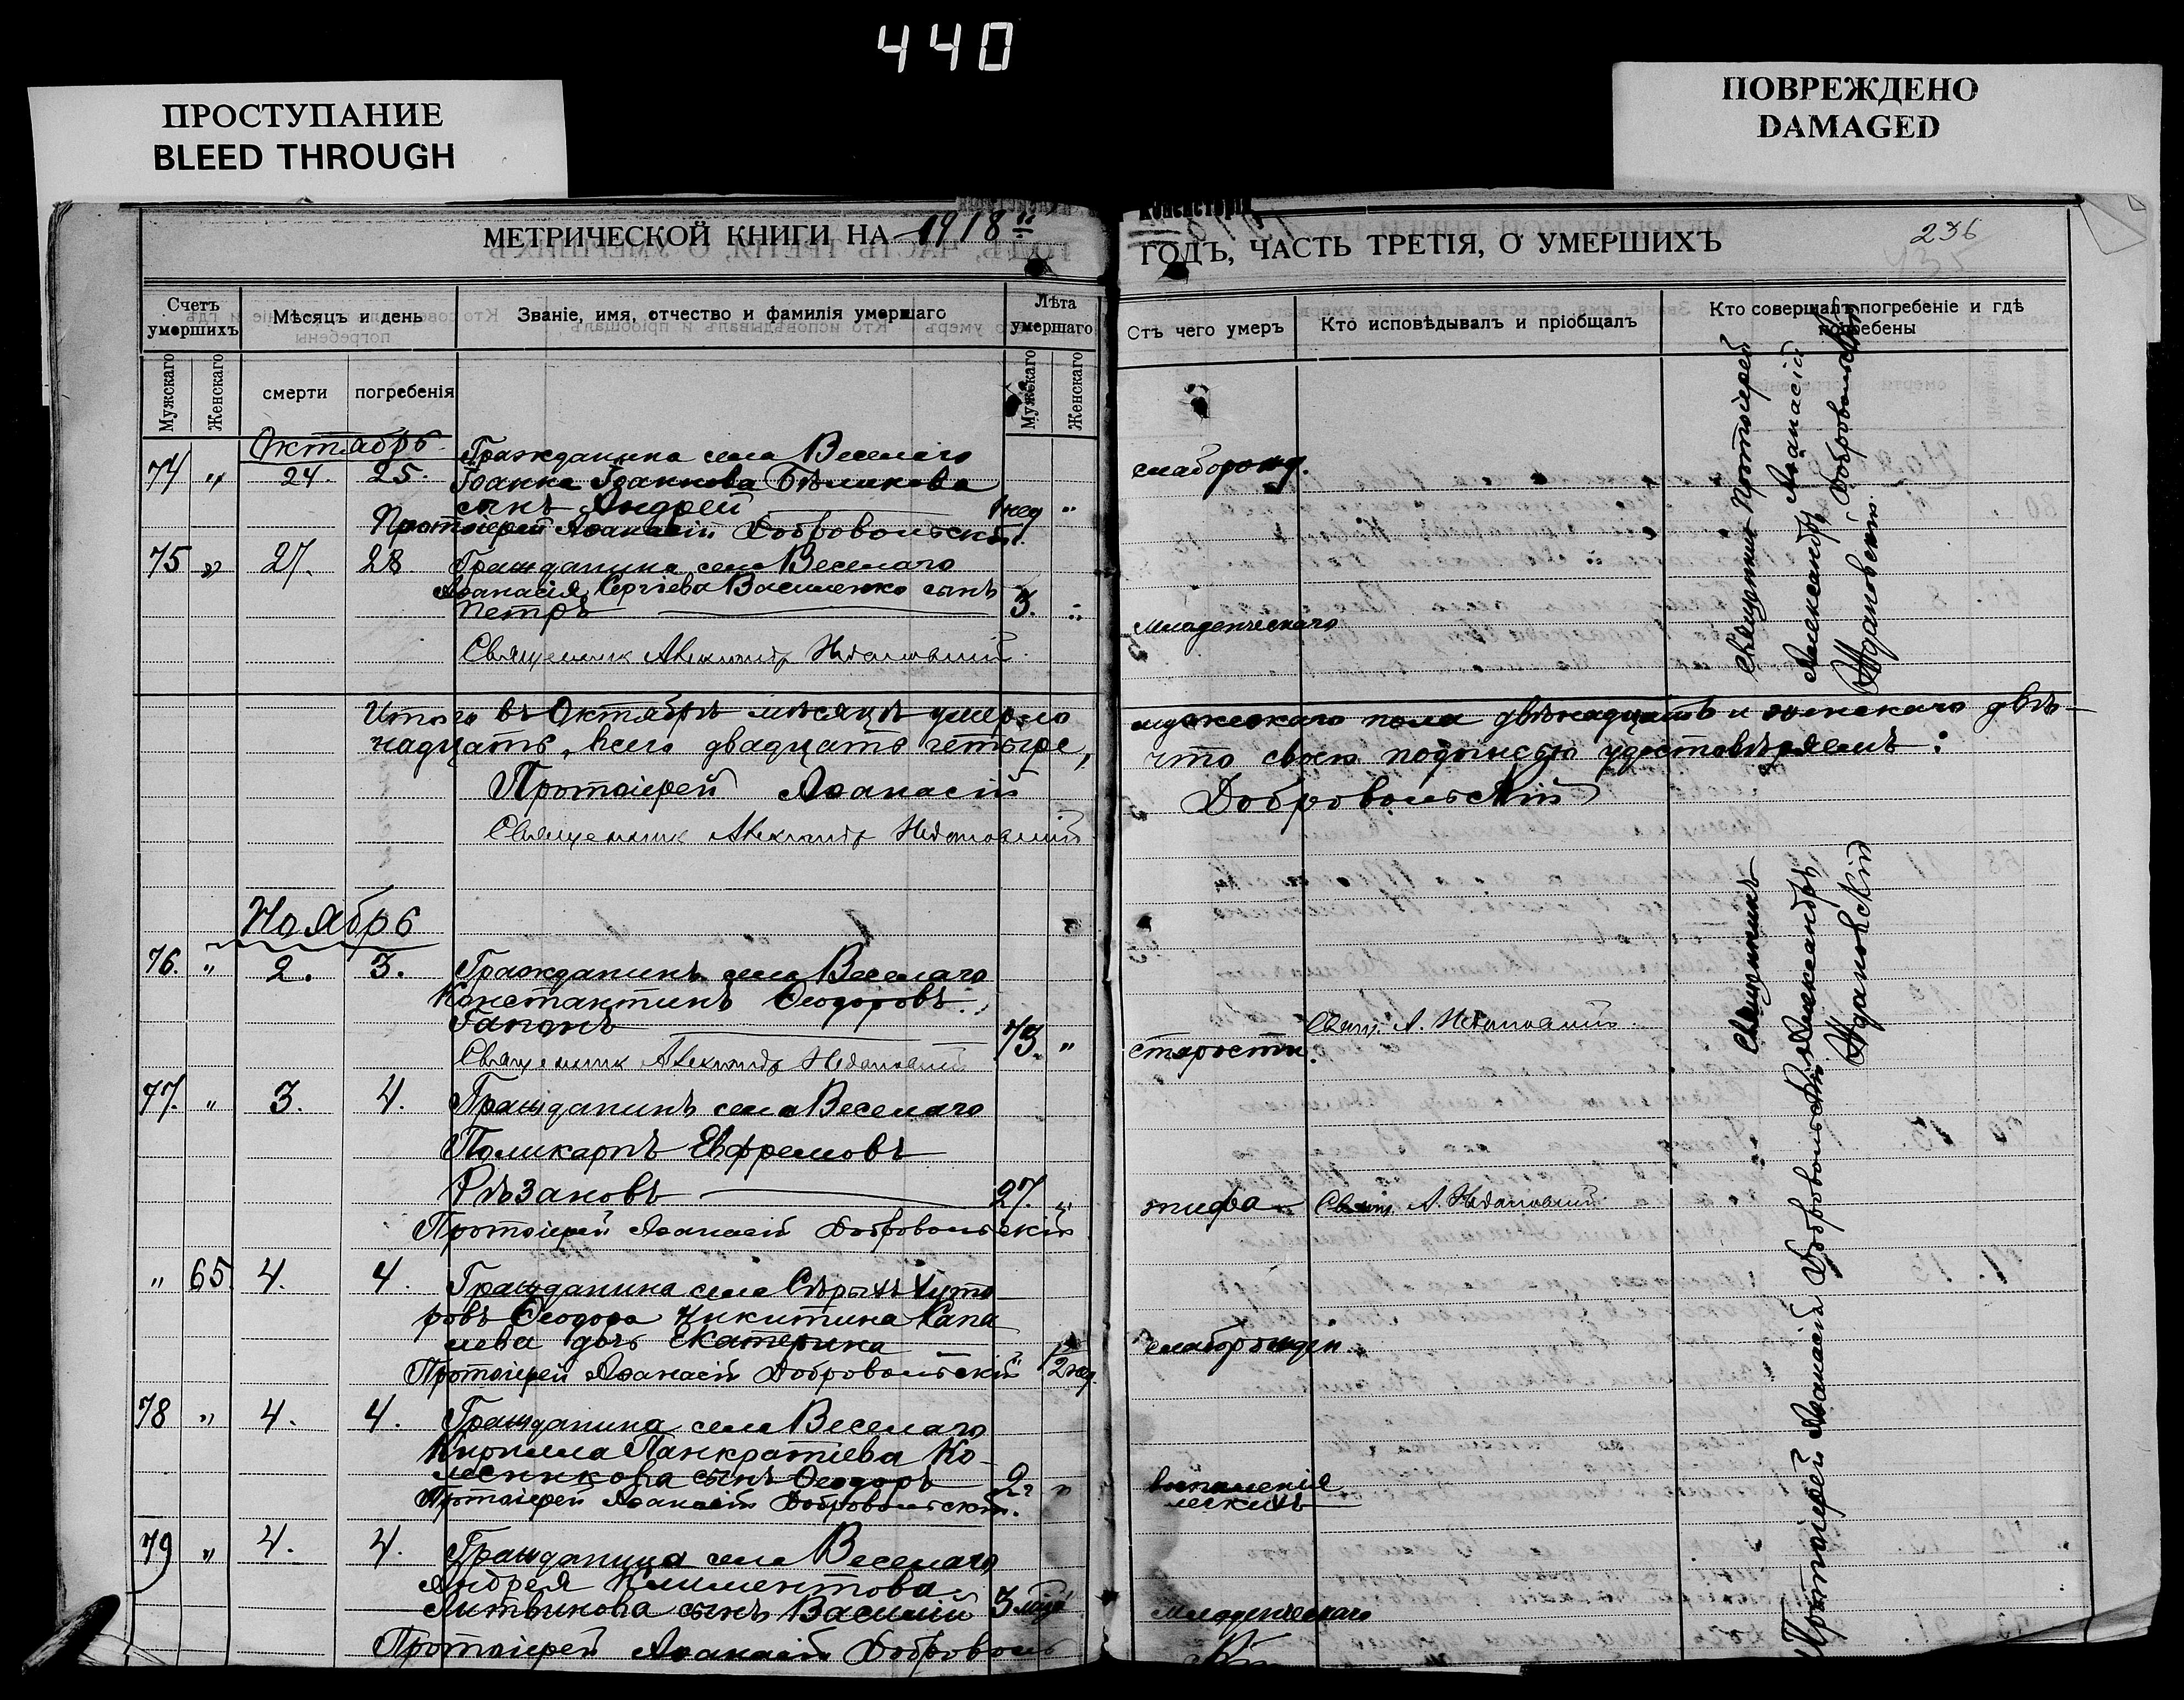 440
ПРОСТУПАНИЕ
BLEED THROUGH
ПОВРЕЖДЕНО
DAMAGED
МЕТРИЧЕСКОЙ КНИГИ НА 1918й
ГОДЪ, ЧАСТЬ ТРЕТІЯ, О УМЕРШИХЪ
236
Счетъ умершихъ
Мѣсяцъ и день
Званіе, имя, отчество и фамилія умершаго
Лѣта умершаго
Отъ чего умеръ
Кто исповѣдывалъ и пріобщалъ
Кто совершалъ погребеніе и гдѣ погребены
Мужскаго
Женскаго
смерти
погребенія
Мужскаго
Женскаго
Октябрь
74 " 24. 25. Гражданина села Веселаго
Іоанна Іоаннова Бѣликова
сынъ Андрей 1 нед "
слаборожд.
Протоіерей Аѳанасій Добровольскій
75 " 27. 28 Гражданина села Веселаго
Аѳанасія Сергіева Василенко сынъ
Петръ 3. "
Младенческаго
Священник Александр Ждановский
Священникъ Протоіерей
Александръ Аѳанасій
Ждановскій Добровольскій
Итого въ Октябрѣ мѣсяцѣ умерло мужскаго пола двѣнадцать и женскаго двѣ-
надцать, всего двадцать четыре, что своею подписью удостовѣряемъ:
Протоіерей Аѳанасій Добровольскій
Священник Александр Ждановский
Ноябрь
76. " 2. 3. Гражданинъ села Веселаго
Константинъ Ѳеодоровъ
Гапонъ 73. "
старости.
Свящ. А. Ждановский.
Священник Александр Ждановский
77. " 3. 4. Гражданинъ села Веселаго
Поликарпъ Евфремовъ
Рѣзановъ 27. "
тифа
Свящ. А. Ждановский
Протоіерей Аѳанасій Добровольскій
" 65. 4. 4. Гражданина села Сѣрыхъ Хуто
ровъ Ѳеодора Никитина
дочь Екатерина
2 нед.
слаборожден.
Протоіерей Аѳанасій Добровольскій
78 " 4. 4. Гражданина села Веселаго
Кирилла Панкратіева Ко-
лесникова сынъ Ѳеодоръ 2 г "
воспаленія
легкихъ
Протоіерей Аѳанасій Добровольскій.
79 " 4. 4. Гражданина села Веселаго
Андрея Климентова
Литвинова сынъ Василій 3 мѣс
Младенческаго
Протоіерей Аѳанасій Доброволь
скій
Священникъ
Александръ
Ждановскій
Протоіерей Аѳанасій Добровольскій